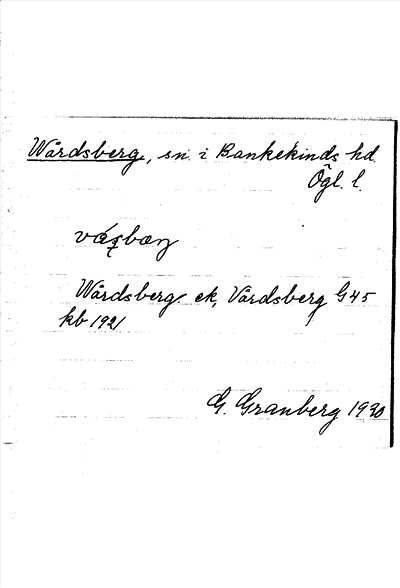 Wårdsberg, sn i Bankekinds hd
Ögl. l.
Wårdsberg ek, Vårdsberg G45
kb 1921
G. Granberg 1930